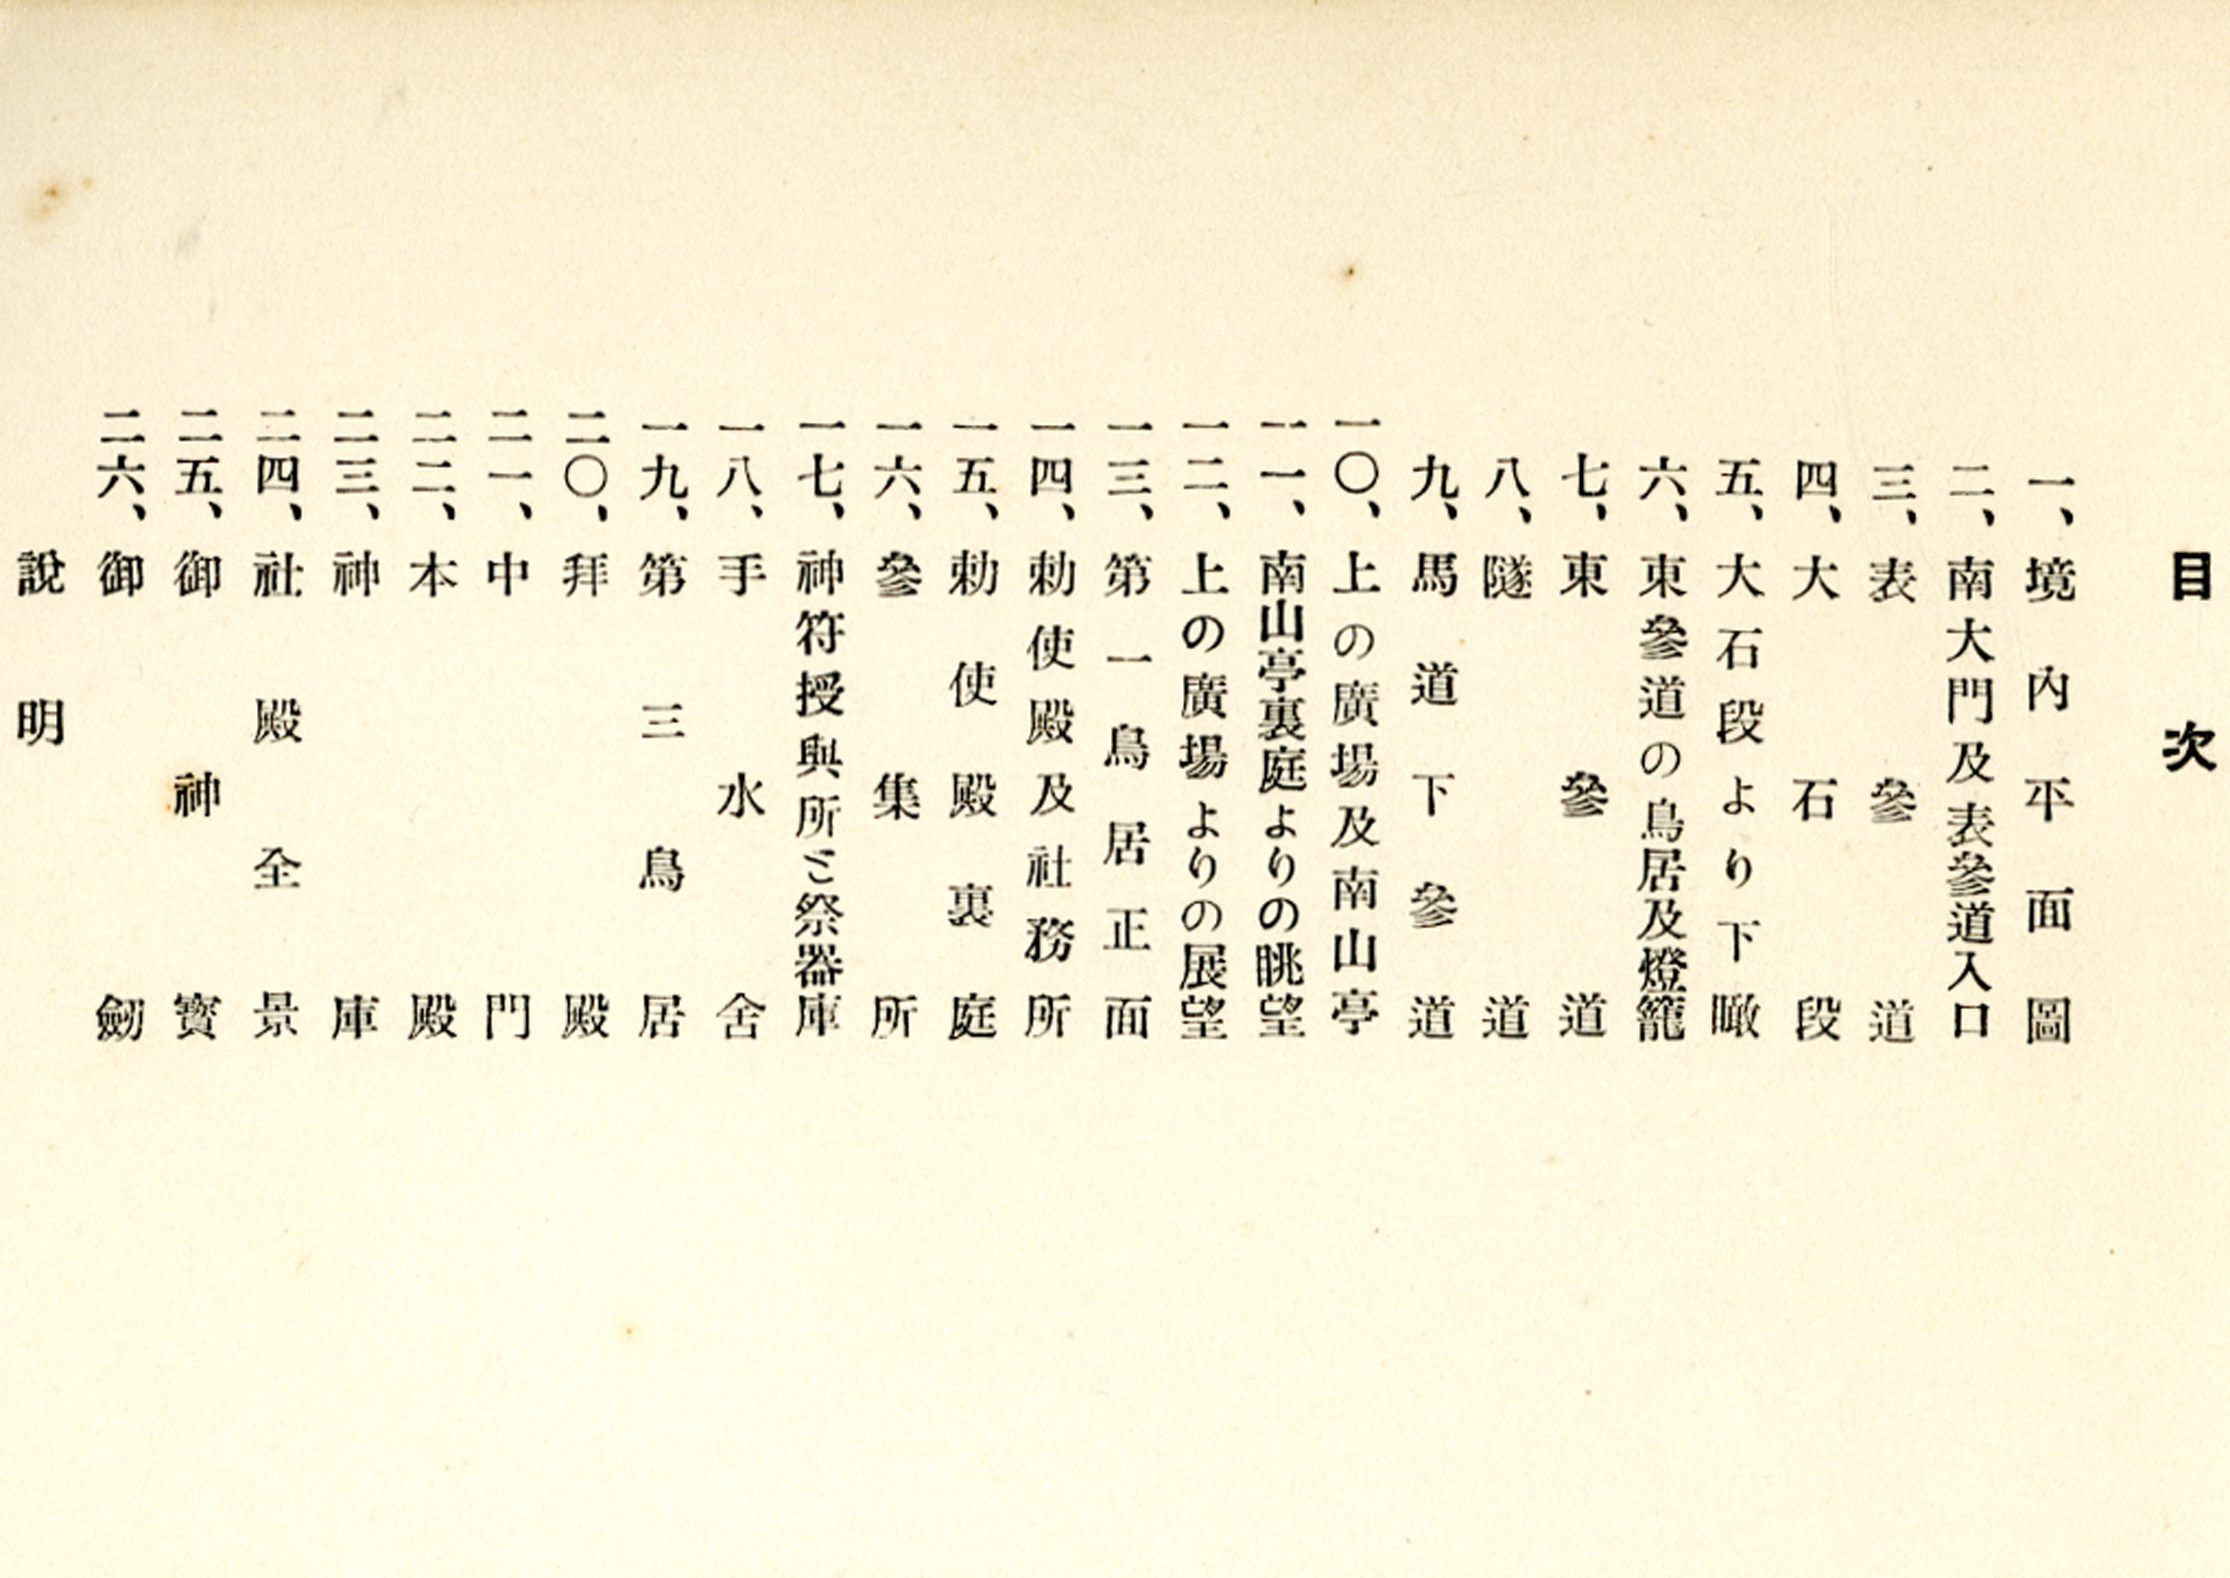 目次
一、境內平面圖
二、南大門及表參道入口
三、表參道
四、大石段
五、大石段より下瞰
六、東參道の鳥居及燈籠
七、東參道
八、隧道
九、馬道下參道
一〇、上の廣場及南山亭
一一、南山亭裏庭よりの眺望
一二、上の廣場よりの展望
一三、第一鳥居正面
一四、勅使殿及社務所
一五、勅使殿裏庭
一六、參集所
一七、神符授與所と祭器庫
一八、手水舍
一九、第三鳥居
二〇、拜殿
二一、中門
二二、本殿
二三、神庫
二四、社殿全景
二五、御神寶
二六、御劒
說明